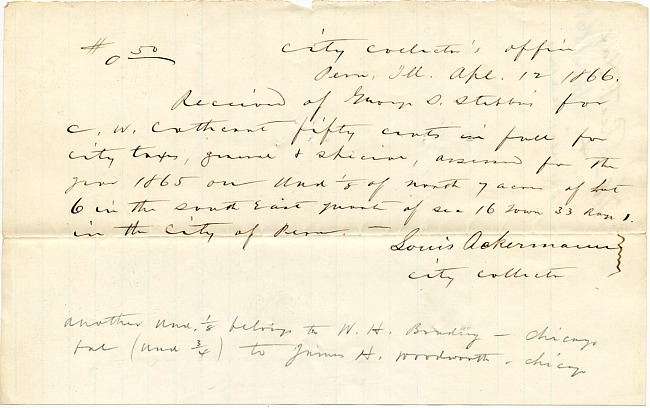 $0 50
City Collector's Office
Peru, Ill. Apl. 12 1866.
Received of George D. Stebbins for
C. W. Cathcart fifty cents in full for
City taxes, general & special, assessed for the
year 1865 on Und ⅛ of north 7 acres of Lot
6 in the South East quart of sec 16 Town 33 Rang 1.
in the City of Peru. —
Louis Ackermann
City Collector
another Und. ⅛ belongs to W. H. Bradley — Chicago
bal (und ¾) to James H. Woodworth - Chicago